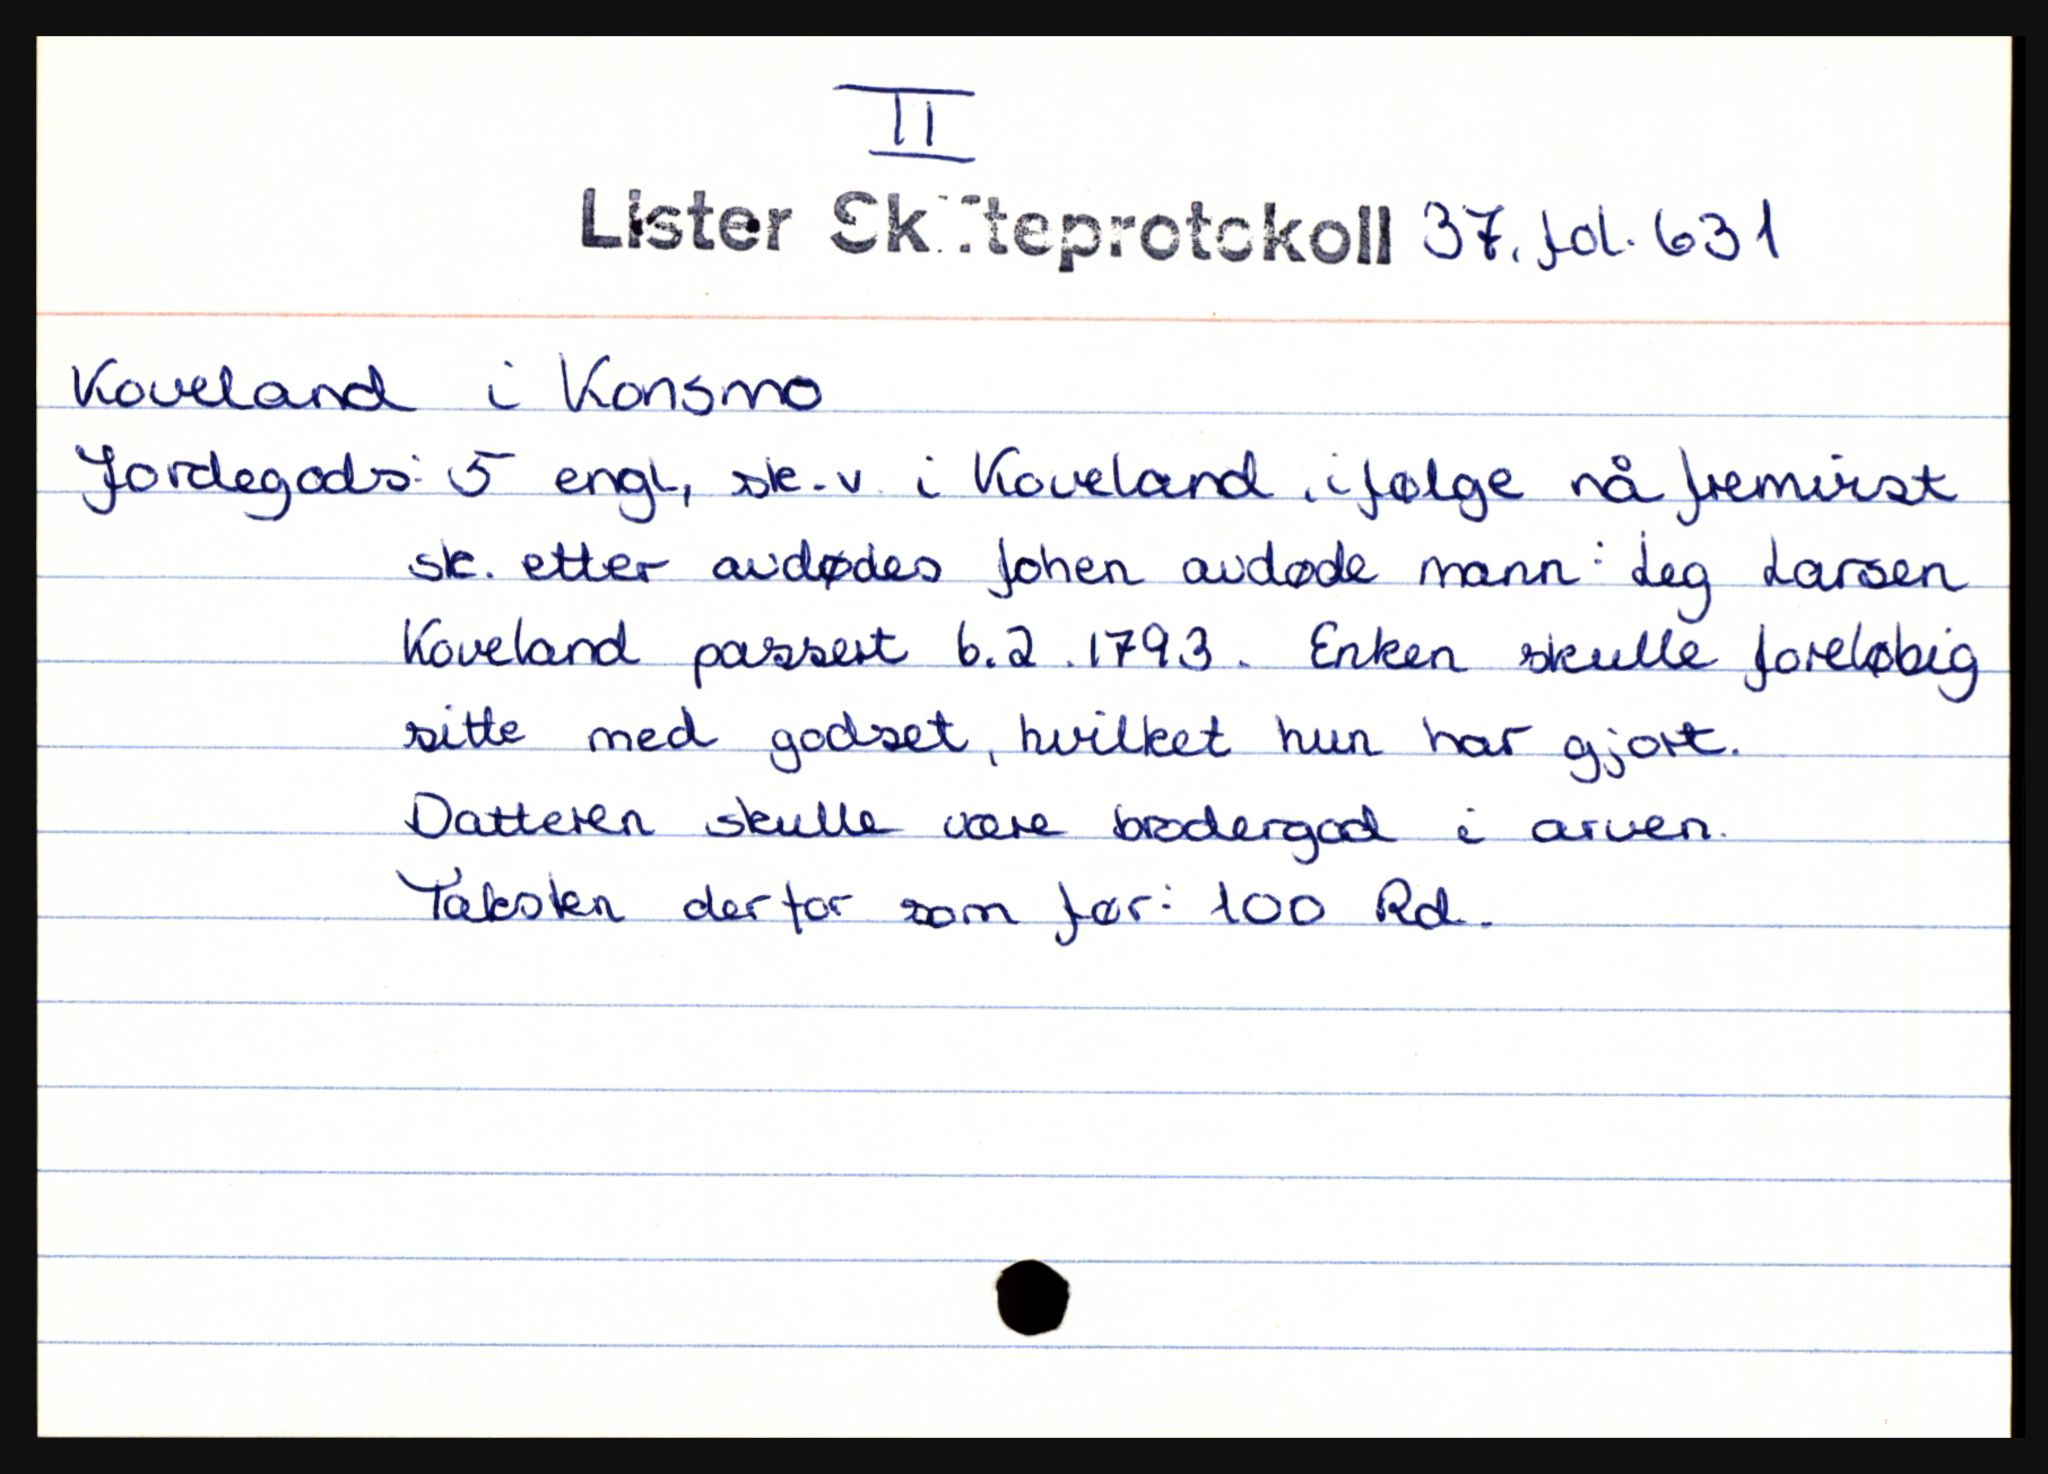 II
Lister Skifteprotokoll 37. fol. 631
Koveland i Konsmo
Jordegods: 5 engl, sk.v. i Koveland, ifølge nå fremvist
sk. etter avdødes fohen avdøde mann: Leg Larsen
Koveland passert 6.2.1793. Enken skulle foreløbig
sitte med godset, hvilket hun har gjort.
Datteren skulle være brodergod i arven.
Taksten derfor som før: 100 Rd.